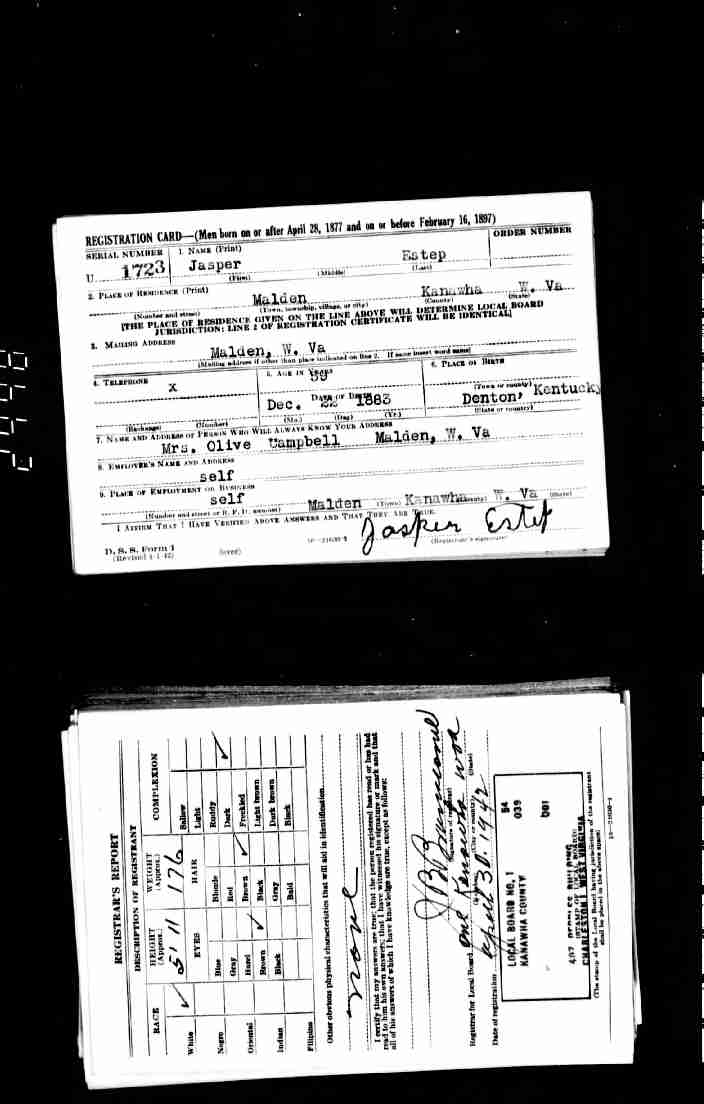 REGISTRATION CARD—(Men born on or after April 28, 1877 and on or before February 16, 1897)
SERIAL NUMBER 1. NAME (Print) ORDER NUMBER
U 1723 Jasper Estep
(First) (Middle) (Last)
2. PLACE OF RESIDENCE (Print)
Malden Kanawha W. Va
(Number and street) (Town, township, village, or city) (County) (State)
[THE PLACE OF RESIDENCE GIVEN ON THE LINE ABOVE WILL DETERMINE LOCAL BOARD
JURISDICTION; LINE 2 OF REGISTRATION CERTIFICATE WILL BE IDENTICAL]
3. MAILING ADDRESS
Malden, W. Va
(Mailing address if other than place indicated on line 2. If same insert word same)
4. TELEPHONE 5. AGE IN YEARS 6. PLACE OF BIRTH
x 59
DATE OF BIRTH (Town or county)
Dec. 22 1883 Denton, Kentucky
(Exchange) (Number) (Mo.) (Day) (Yr.) (State or country)
7. NAME AND ADDRESS OF PERSON WHO WILL ALWAYS KNOW YOUR ADDRESS
Mrs. Olive Campbell Malden, W. Va
8. EMPLOYER'S NAME AND ADDRESS
self
9. PLACE OF EMPLOYMENT OR BUSINESS
self Malden Kanawha W. Va
(Number and street or R. F. D. number) (Town) (County) (State)
I AFFIRM THAT I HAVE VERIFIED ABOVE ANSWERS AND THAT THEY ARE TRUE.
D. S. S. Form 1
(Revised 4-1-42) (over) 16—21630-1 Jasper Estep
(Registrant's signature)
REGISTRAR'S REPORT
DESCRIPTION OF REGISTRANT
RACE HEIGHT (Approx.) WEIGHT (Approx.) COMPLEXION
✓ 5' 11 176
White EYES HAIR Sallow
Light
Negro Blue Blonde Ruddy
Gray Red Dark ✓
Oriental Hazel Brown ✓ Freckled
Brown ✓ Black Light brown
Indian Black Gray Dark brown
Bald Black
Filipino
Other obvious physical characteristics that will aid in identification
none
I certify that my answers are true; that the person registered has read or has had
read to him his own answers; that I have witnessed his signature or mark and that
all of his answers of which I have knowledge are true, except as follows:
(Signature of registrar)
Registrar for Local Board one Kanawha
(Number) (City or county) (State)
Date of registration April 30. 1942
LOCAL BOARD NO. 1 54
KANAWHA COUNTY 039
001
(STAMP OF LOCAL BOARD)
CHARLESTON 1 WEST VIRGINIA
(The stamp of the Local Board having jurisdiction of the registrant
shall be placed in the above space)